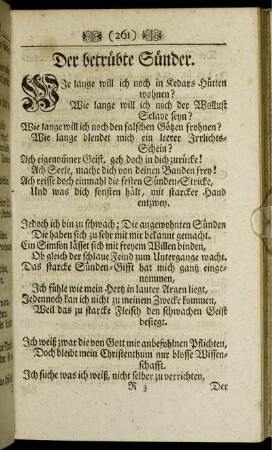 (261)
Der betrübte Sünder.
Wie lange will ich noch in Kedars Hütten
wohnen?
Wie lange will ich noch der Wollust
Sclave seyn?
Wie lange will ich noch den falschen Götzen frohnen?
Wie lange blendet mich ein leerer Irrlichts-
Schein?
Ach eigenoüner Geist, geh doch in dich zurücke!
Ach Seele, mache dich von deinen Banden frey!
Ach reisse doch einmahl die festen Sünden-Stricke,
Und was dich sonsten hält, mit starcker Hand
entzwey.
Jedoch ich bin zu schwach; Die angewohnten Sünden
Die haben sich zu sehr mit mir bekant gemacht.
Ein Simson lässet sich mit freyem Willen binden,
Ob gleich der schlaue Feind zum Untergange wacht.
Das starcke Sünden-Gifft hat mich gantz einge-
nommen,
Ich fühle wie mein Hertz in lauter Argen liegt,
Jedennoch kan ich nicht zu meinem Zwecke kommen,
Weil das zu starcke Fleisch den schwachen Geist
besiegt.
Ich weiß zwar die von Gott mir anbefohlnen Pflichten,
Doch bleibt mein Christenthum nur blosse Wissen-
schafft.
Ich suche was ich weiß, nicht selber zu verrichten,
R 3 Der